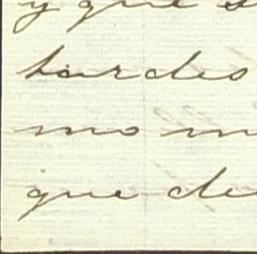 y que s
tardes
mo m
que de